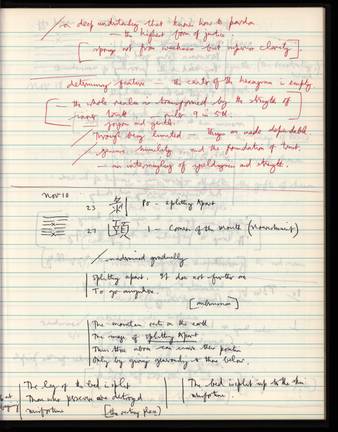 a deep understanding that knows how to pardon
— the highest form of justice.
[spring not from weakness but superior clarity].
determining factors — the centre of the hexagram is empty
— the whole realm is transformed by the strength of
inner truth — ruler 9 in 5th.
joyous and gentle.
Through being limited — things are made dependable.
genuine humility and the foundation of trust.
— an intermingling of yielding and strength.
Nov 10
23 剝 Po — splitting Apart
27 頤 I — Corners of the Mouth (Nourishment)
undermined gradually
splitting apart. It does not further one
To go anywhere.
The mountain rests on the earth
The image of splitting Apart
Thus those above can ensure their position
Only by giving generously to those below.
The leg of the bed is split
Those who persevere are destroyed
misfortune
The bed is split up to the skin
misfortune.